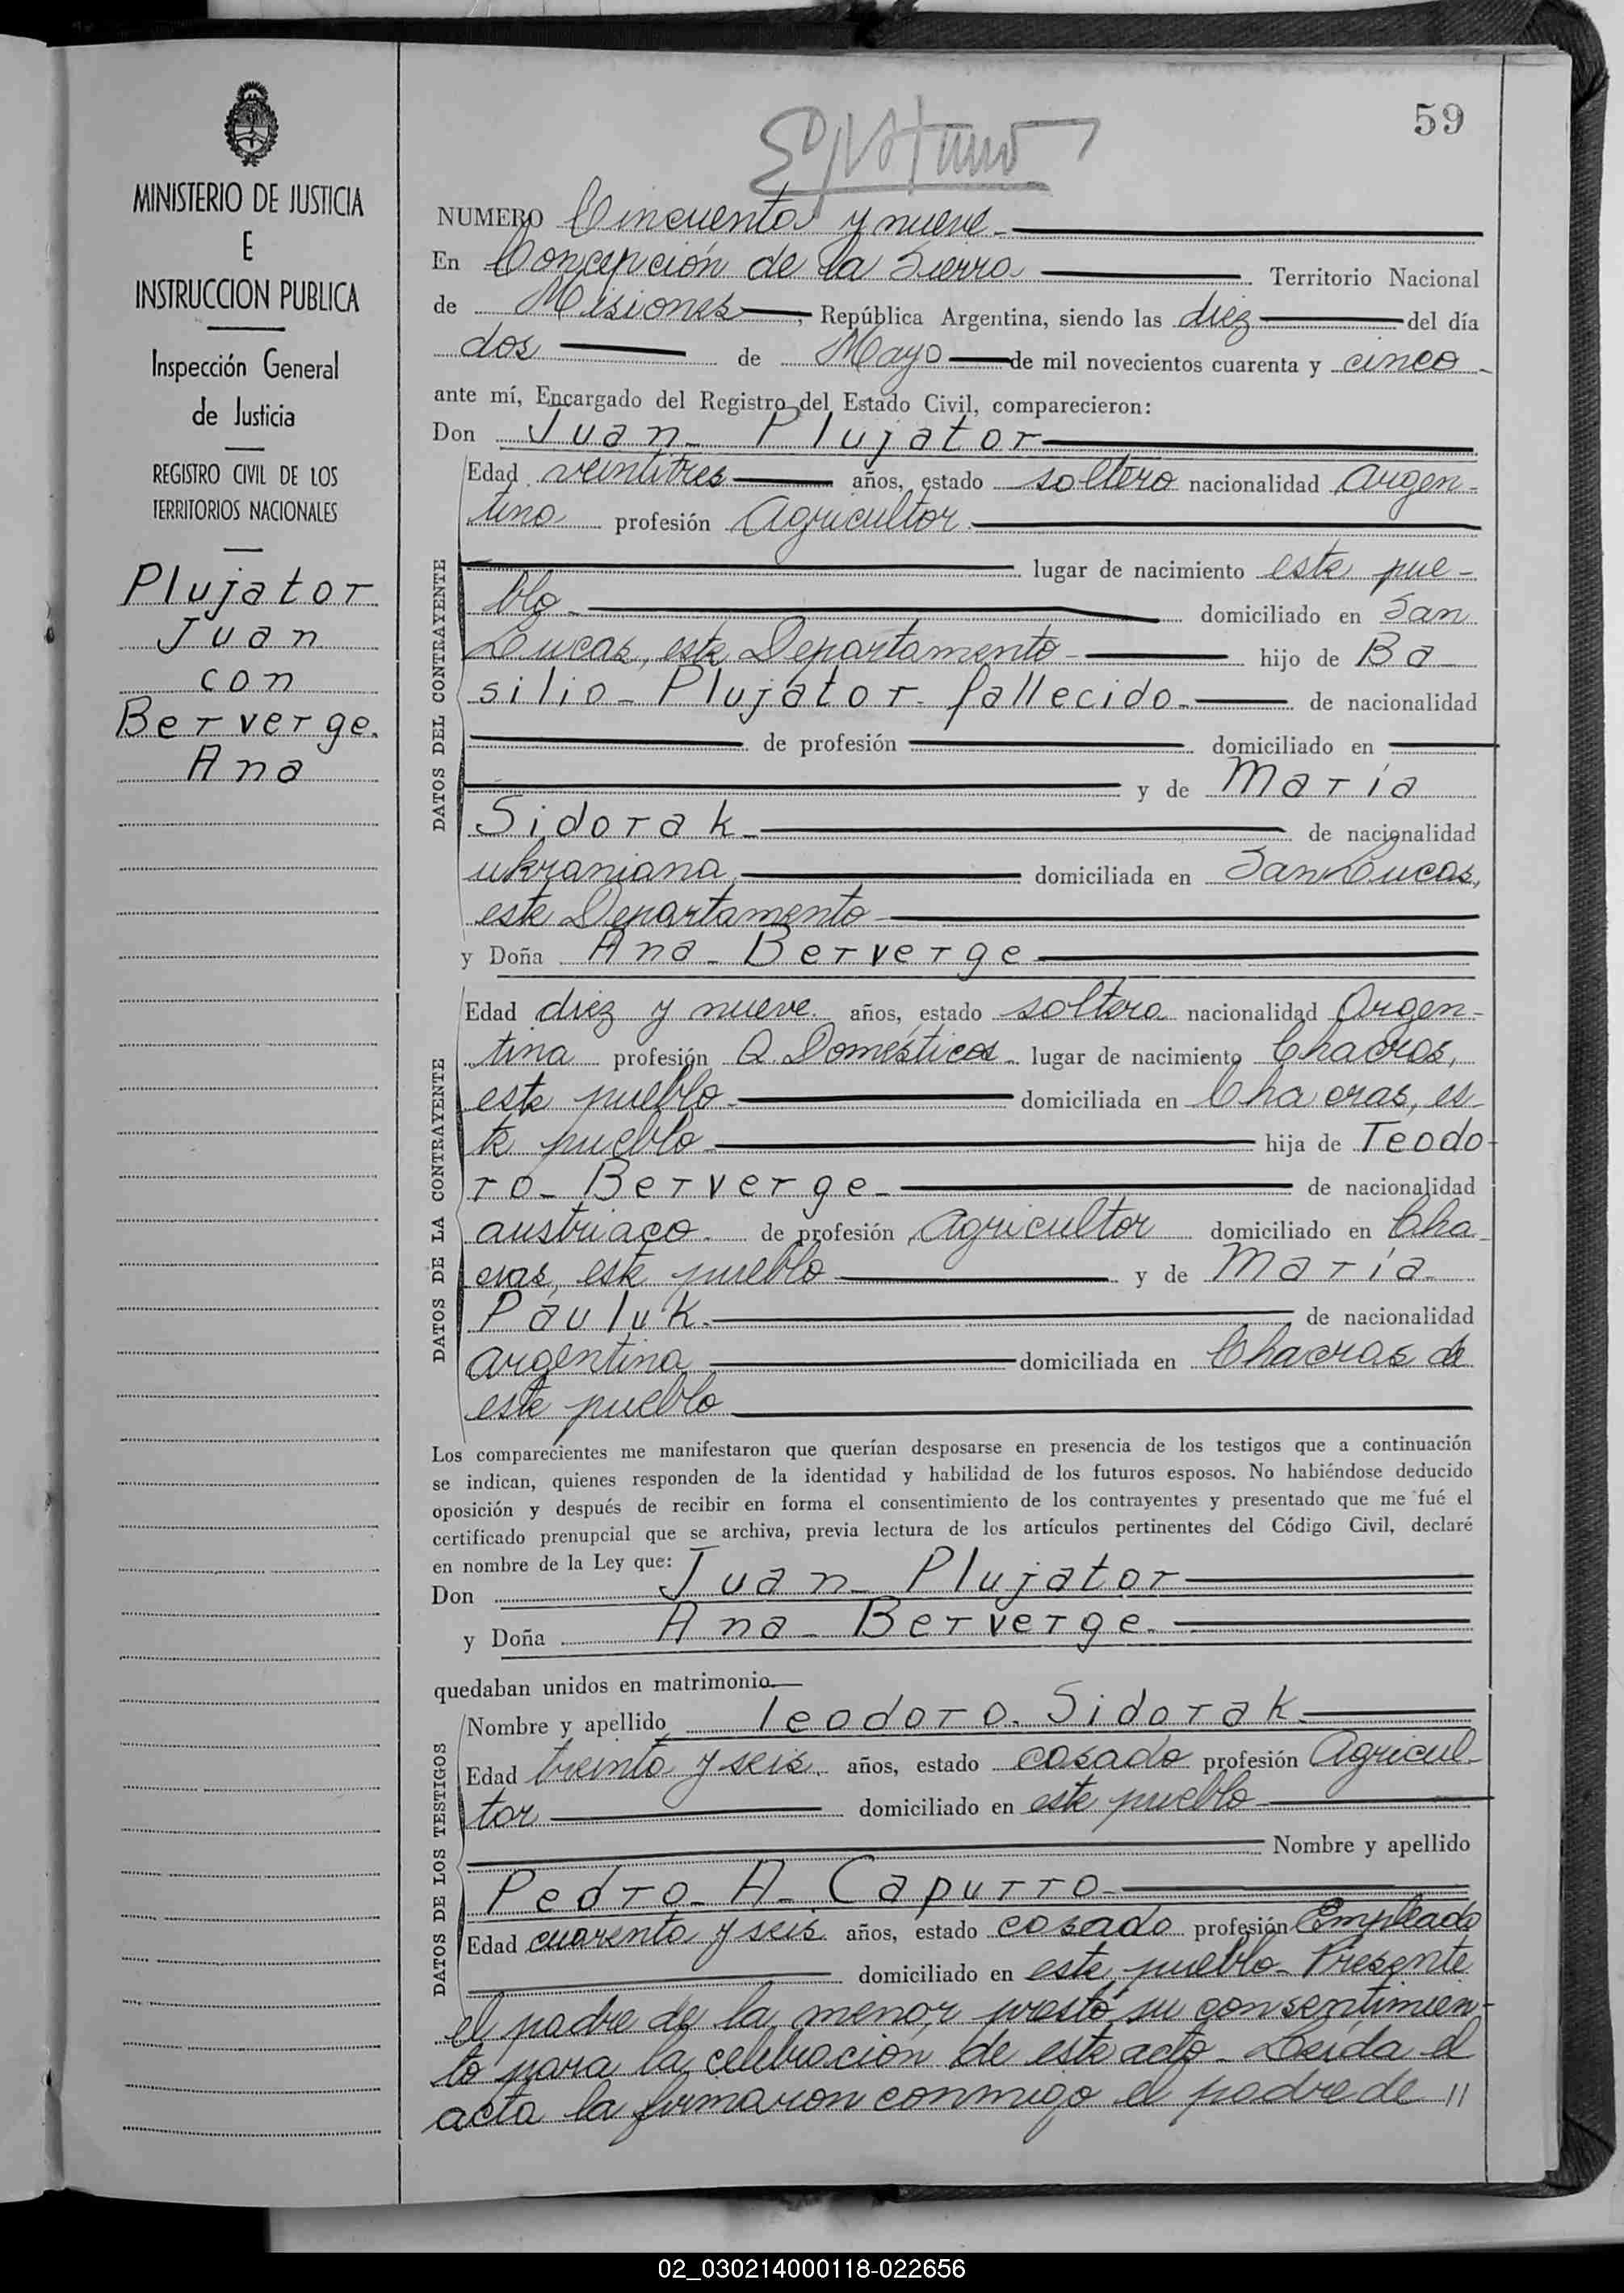 59
MINISTERIO DE JUSTICIA
E
INSTRUCCION PUBLICA
Inspección General
de Justicia
REGISTRO CIVIL DE LOS
TERRITORIOS NACIONALES
Plujator
Juan
con
Berverge.
Ana
NUMERO Cincuenta y nueve.
En Concepción de la Sierra Territorio Nacional
de Misiones, República Argentina, siendo las diez del día
dos de Mayo de mil novecientos cuarenta y cinco
ante mí, Encargado del Registro del Estado Civil, comparecieron:
Don Juan Plujator
DATOS DEL CONTRAYENTE
Edad veintitres años, estado soltero nacionalidad Argen-
tino profesión Agricultor
lugar de nacimiento este pue-
blo domiciliado en San
Lucas, este Departamento hijo de Ba
silio Plujator fallecido de nacionalidad
de profesión domiciliado en
y de María
Sidorak de nacionalidad
ukraniana domiciliada en San Lucas,
este Departamento
y Doña Ana Berverge
DATOS DE LA CONTRAYENTE
Edad diez y nueve años, estado soltera nacionalidad Argen-
tina profesión Q. Domésticos lugar de nacimiento Chacras,
este pueblo domiciliada en Chacras, es
te pueblo hija de Teodo-
ro Berverge de nacionalidad
austriaco de profesión Agricultor domiciliado en Cha
cras, este pueblo y de María
Pauluk. de nacionalidad
argentina domiciliada en Chacras de
este pueblo
Los comparecientes me manifestaron que querían desposarse en presencia de los testigos que a continuación
se indican, quienes responden de la identidad y habilidad de los futuros esposos. No habiéndose deducido
oposición y después de recibir en forma el consentimiento de los contrayentes y presentado que me fué el
certificado prenupcial que se archiva, previa lectura de los artículos pertinentes del Código Civil, declaré
en nombre de la Ley que:
Don Juan Plujator
y Doña Ana Berverge
quedaban unidos en matrimonio.
DATOS DE LOS TESTIGOS
Nombre y apellido Teodoro Sidorak
Edad treinta y seis años, estado casado profesión Agricul-
tor domiciliado en este pueblo
Nombre y apellido
Pedro A. Capurro
Edad cuarenta y seis años, estado casado profesión Empleado
domiciliado en este pueblo Presente
el padre de la menor prestó su consentimien-
to para la celebración de este acto Leída el
acta la firmaron conmigo el padre de "
02_030214000118-022656